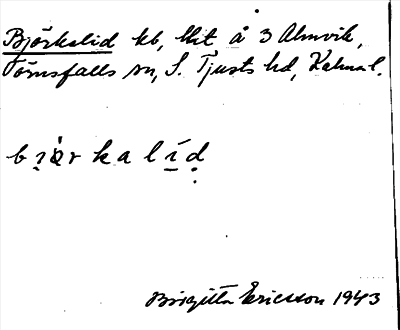 Björkelid kb, lht å 3 Almvik,
Törnsfalls sn, S. Tjusts hd, Kalm. l.
b ı̣ ȯ̀ r k a l í̲ ḍ
Birgitta Ericsson 1943